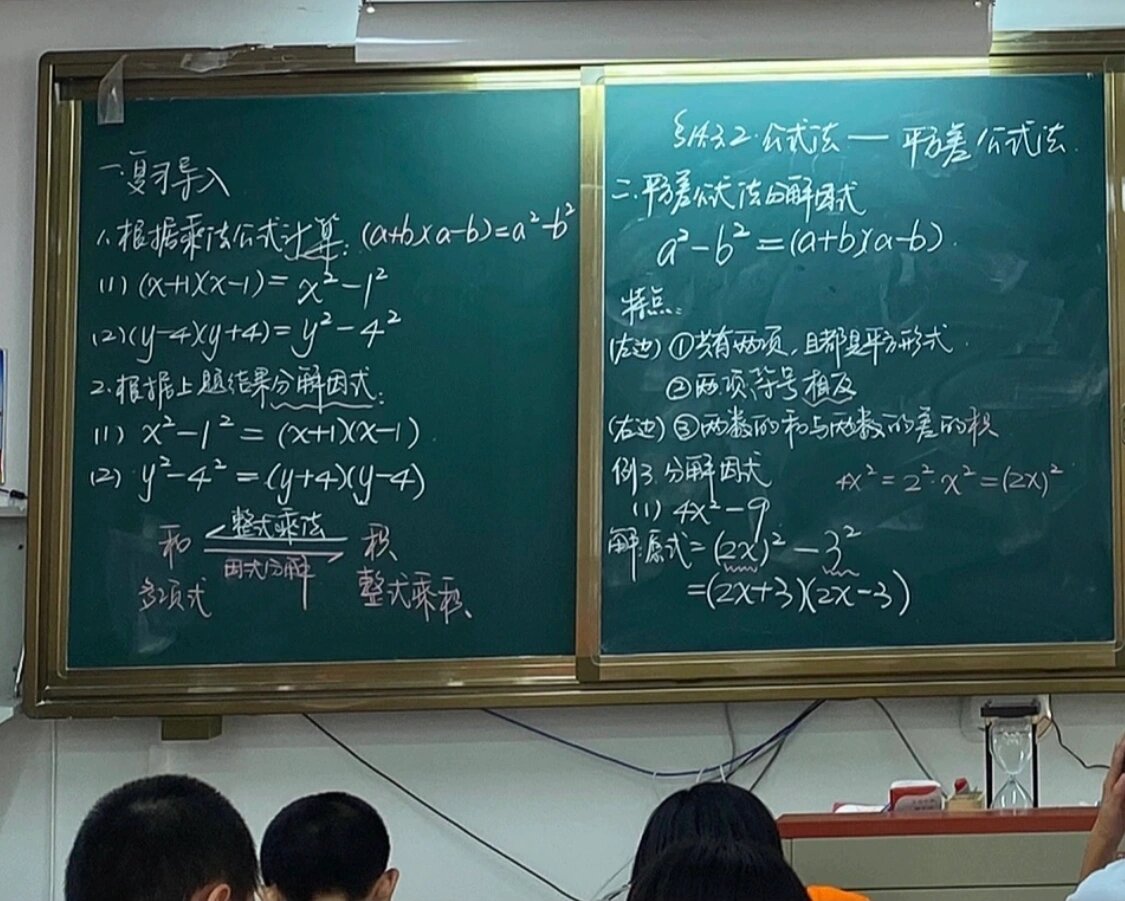 一.复习导入
1.根据乘法公式计算:(a+b)(a-b)=a²-b²
(1) (x+1)(x-1)= x²-1²
(2)(y-4)(y+4)= y²-4²
2.根据上题结果分解因式:
(1) x²-1² = (x+1)(x-1)
(2) y²-4² =(y+4)(y-4)
和 整式乘法 积
因式分解
多项式 整式乘积
§14.3.2 公式法 — 平方差公式法
二.平方差公式法分解因式
a²-b²=(a+b)(a-b).
特点:
(左边) ①共有两项,且都是平方形式.
②两项符号相反
(右边) ③两数的和与两数的差的积
例3.分解因式 4x²=2²·x²=(2x)²
(1) 4x²-9
解:原式=(2x)²-3²
=(2x+3)(2x-3)